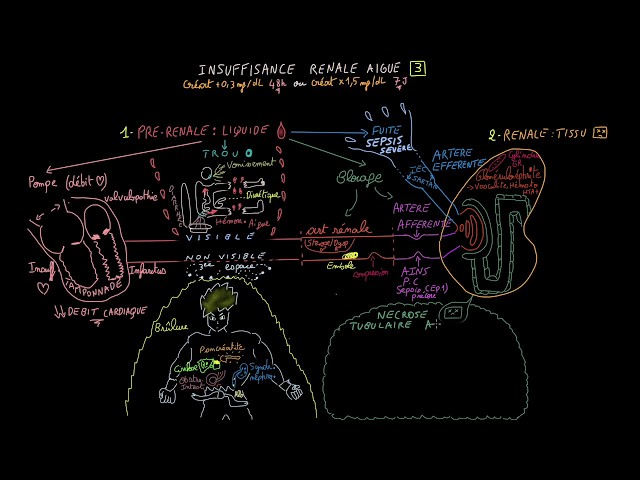 INSUFFISANCE RENALE AIGUE 3
Créat +0,3 mg/dL 48h ou créat x 1,5 mg/dL 7J
1- PRE-RENALE : LIQUIDE
2- RENALE : TISSU
TROU
FUITE
SEPSIS
SEVERE
Vomissement
Diurétique
Hémo
VISIBLE
NON VISIBLE
3e espace
Pompe (débit)
valvulopathie
Insuf
Infarctus
TAMPONNADE
DEBIT CARDIAQUE
Blocage
art rénale
Embole
Compression
IEC
SARTAN
ARTERE
EFFERENTE
ARTERE
AFFERENTE
AINS
P.C
précoce
Cylindre
GR
Glomérulonéphrite
HTA
Brûlure
Pancréatite
Cirrhose
Syndr.
néphro.
Intest
NECROSE
TUBULAIRE A